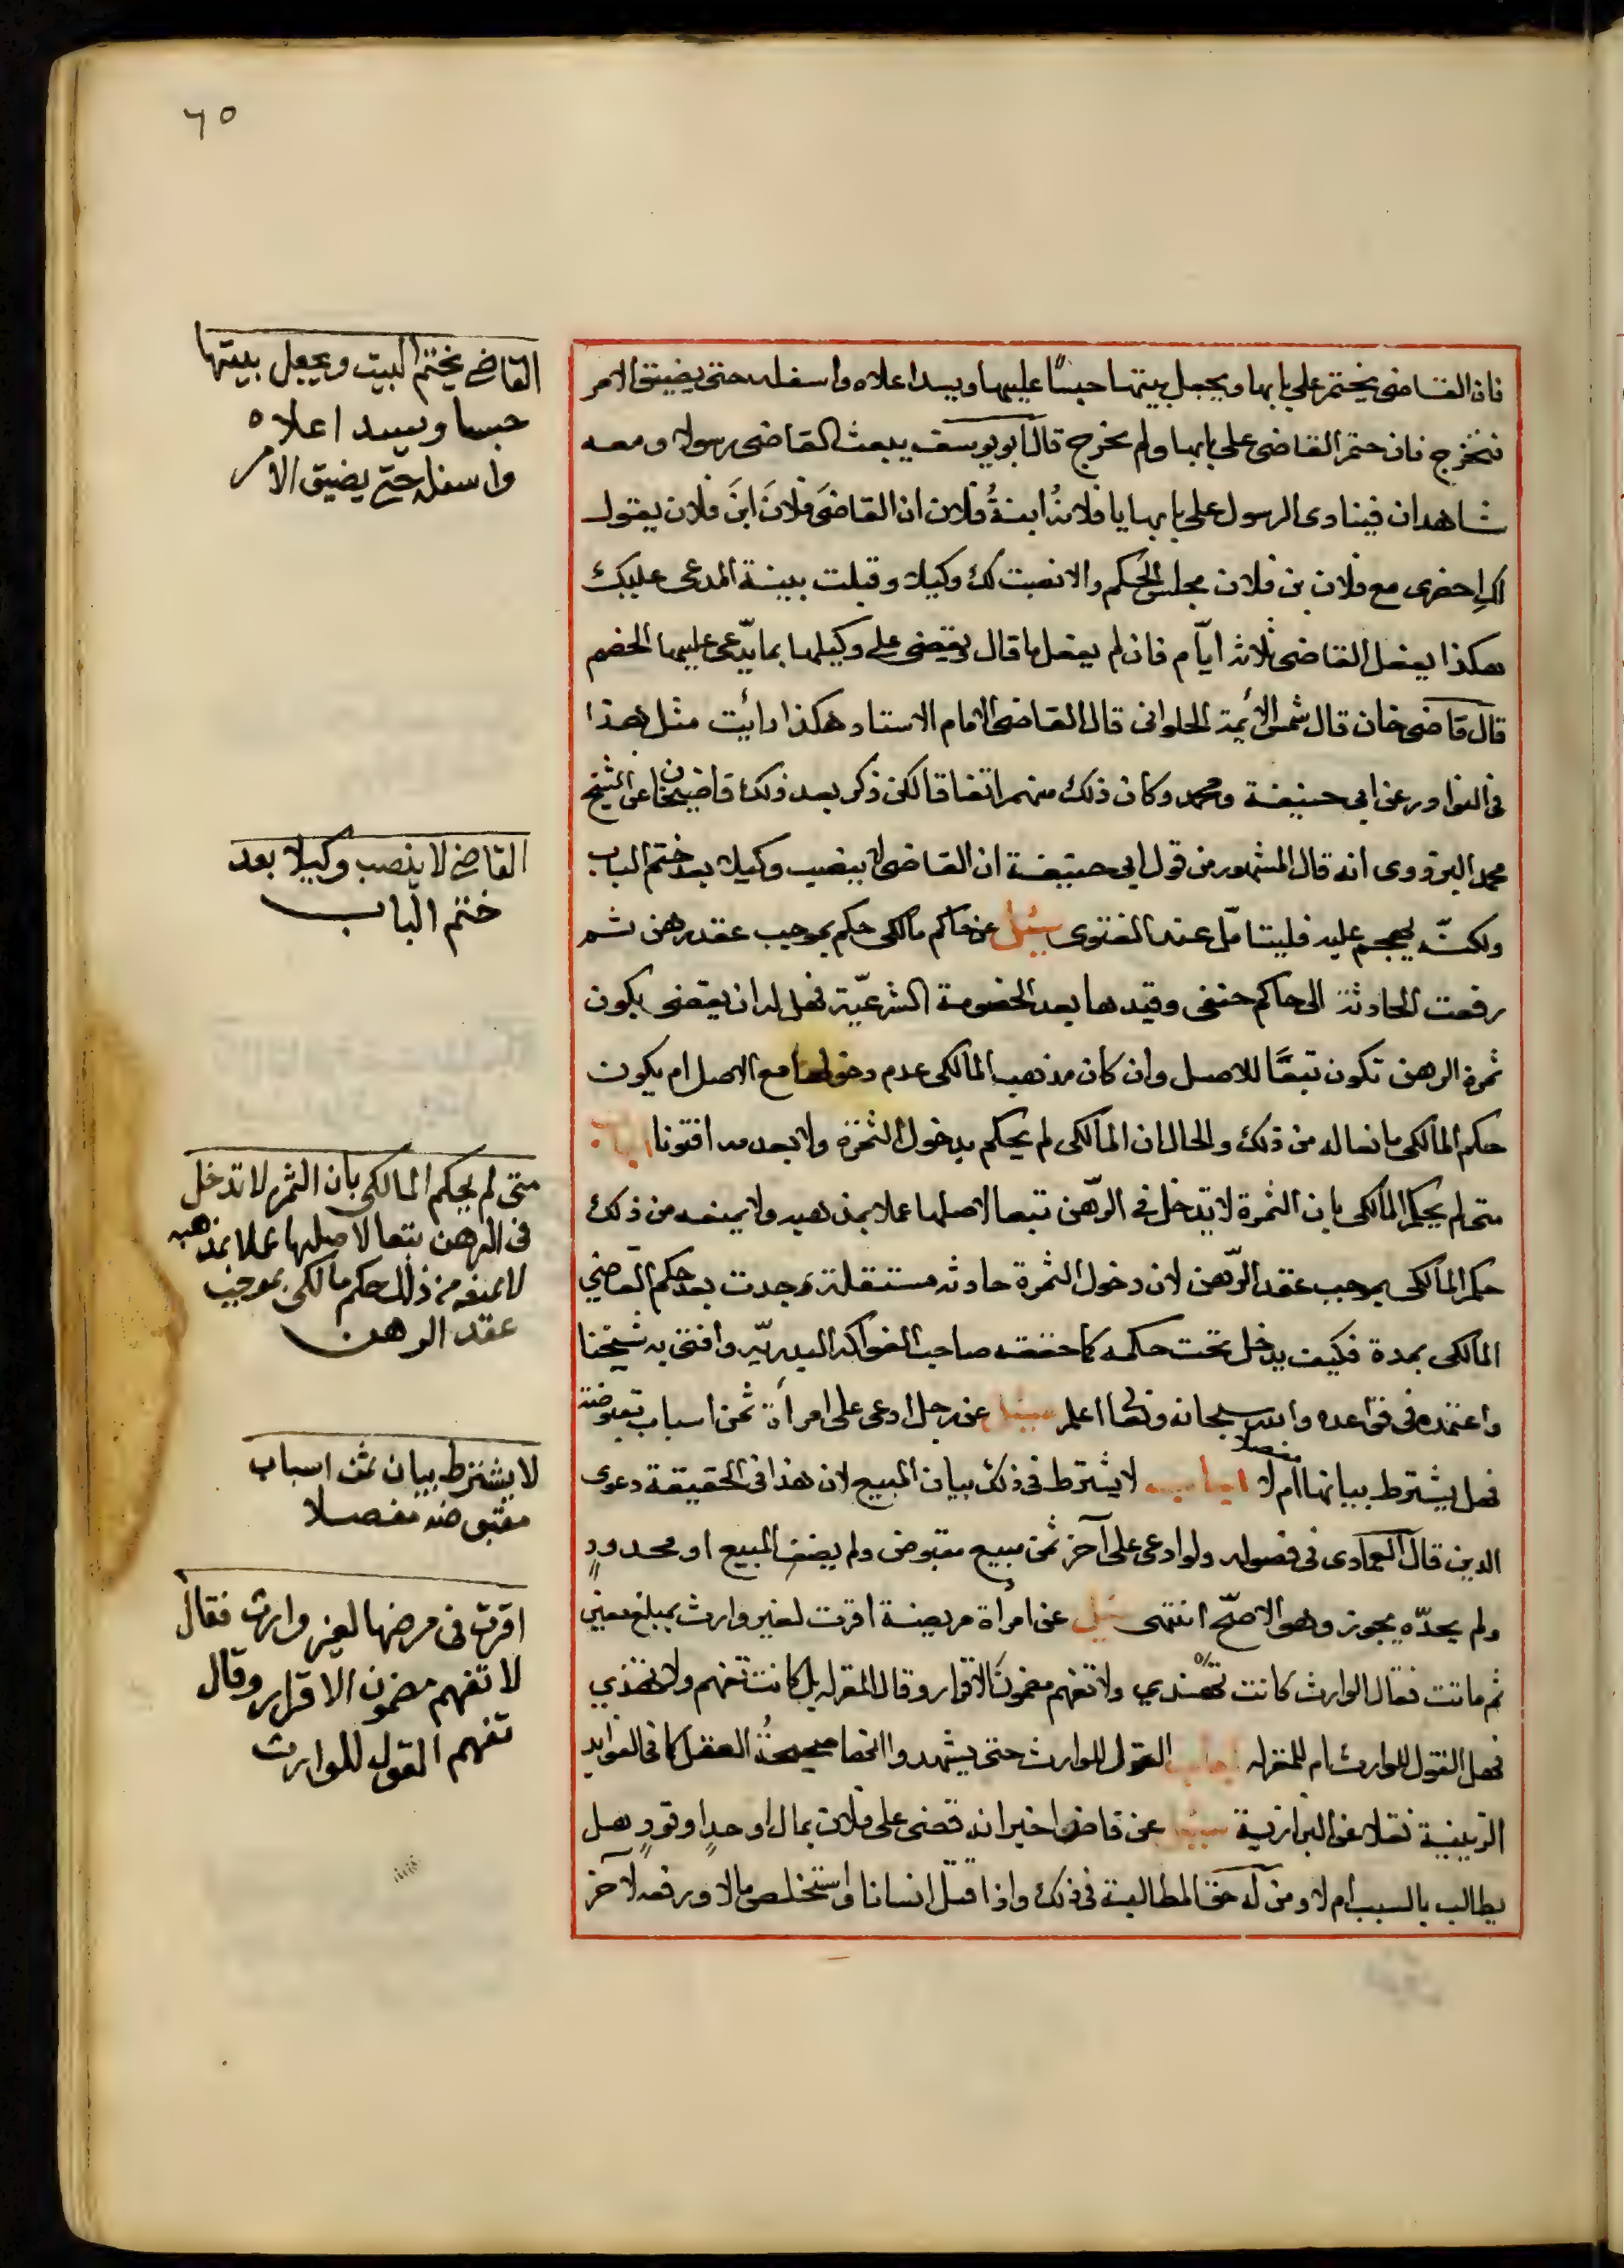 ٦٥
فان القاضى يختم على بابها ويجعل بيتها حبسًا عليها ويسد اعلاه واسفله حتى يضيق الامر
فتخرج فان ختم القاضى على بابها ولم تخرج قال ابو يوسف يبعث القاضى رسولا ومعه
شاهدان فينادى الرسول على بابها يا فلانةُ ابنةُ فلان ان القاضىَ فلانَ ابنَ فلان يقول
لكِ احضرى مع فلان بن فلان مجلس الحكم والا نصبت لك وكيلا وقبلت بينة المدعى عليك
هكذا يفعل القاضى ثلاثة ايّام فان لم يفعل ما قال يقضى على وكيلها بما يدّعى عليها الخصم
قال قاضى خان قال شمس الأئمة الحلوانى قال القاضى الامام الاستاد هكذا رائت مثل هذا
فى النوادر عن ابى حنيفة ومحمد وكان ذلك منهم اتفاقا لكن ذكر بعد ذلك قاضيخان عن الشيخ
محمد البزدوى انه قال المشهور من قول ابى حنيفة ان القاضى لا ينصب وكيلا بعد ختم الباب
ولكنّه يهجم عليه فليتأمّل عند الفتوى سئل عن حاكم مالكى حكم بموجب عقد رهن ثم
رفعت الحادثة الى حاكم حنفى وقيدها بعد الخصومة الشرعيّة فهل له ان يقضى بكون
ثمرة الرهن تكون تبعًا للاصل وان كان مذهب المالكى عدم دخولها مع الاصل ام يكون
حكم المالكى مانعا له من ذلك والحال ان المالكى لم يحكم بدخول الثمرة ولا بعدمه افتونا اجاب
متى لم يحكم المالكى بان الثمرة لا تدخل فى الرّهن تبعا لاصلها عملا بمذهبه ولا يمنعه من ذلك
حكم المالكى بموجب عقد الرّهن لان دخول الثمرة حادثة مستقلة وجدت بعد حكم القاضي
المالكى بمدة فكيف يدخل تحت حكمه كما حققه صاحب الفواكه البدريّه وافتى به شيخنا
واعتمده فى قواعده والله سبحانه وتعالى اعلم سئل عن رجل ادعى على امرأة ثمن اسباب مقبوضة
فهل يشترط بيانها مفصلا ام لا اجاب لا يشترط فى ذلك بيان المبيع لان هذا فى الحقيقة دعوى
الدين قال العمادى فى فصوله ولو ادعى على آخر ثمن مبيع مقبوض ولم يصف المبيع او محدودٍ
ولم يحدّه يجوز وهو الاصحّ انتهى سئل عن امرأة مريضة اقرت لغير وارث بمبلغ معين
ثم ماتت فقال الوارث كانت تهذي ولا تفهم مضمون الاقرار وقال المقر له بل كانت تفهم ولا تهذي
فهل القول للوارث ام للمقر له اجاب القول للوارث حتى يشهدوا انها صحيحةُ العقل كما فى الفوايد
الزينية نقلا عن البزازية سئل عن قاض اخبر انه قضى على فلان بمال او حدٍ او قودٍ هل
يطالب بالسبب ام لا ومن له حق المطالبة فى ذلك واذا قتل انسانا واستخلص مالا ورفعه لآخر
القاضى يختم البيت ويجعل بيتها
حبسا ويسد اعلاه
واسفله حتى يضيق الامر
القاضى لا ينصب وكيلا بعد
ختم الباب
متى لم يحكم المالكى بأن الثمر لا تدخل
فى الرهن تبعا لاصلها عملا بمذهبه
لا يمنعه من ذلك حكم مالكى بموجب
عقد الرهن
لا يشترط بيان ثمن اسباب
مقبوضه مفصلا
اقرت فى مرضها لغير وارث فقال
لا تفهم مضمون الاقرار وقال
تفهم القول للوارث